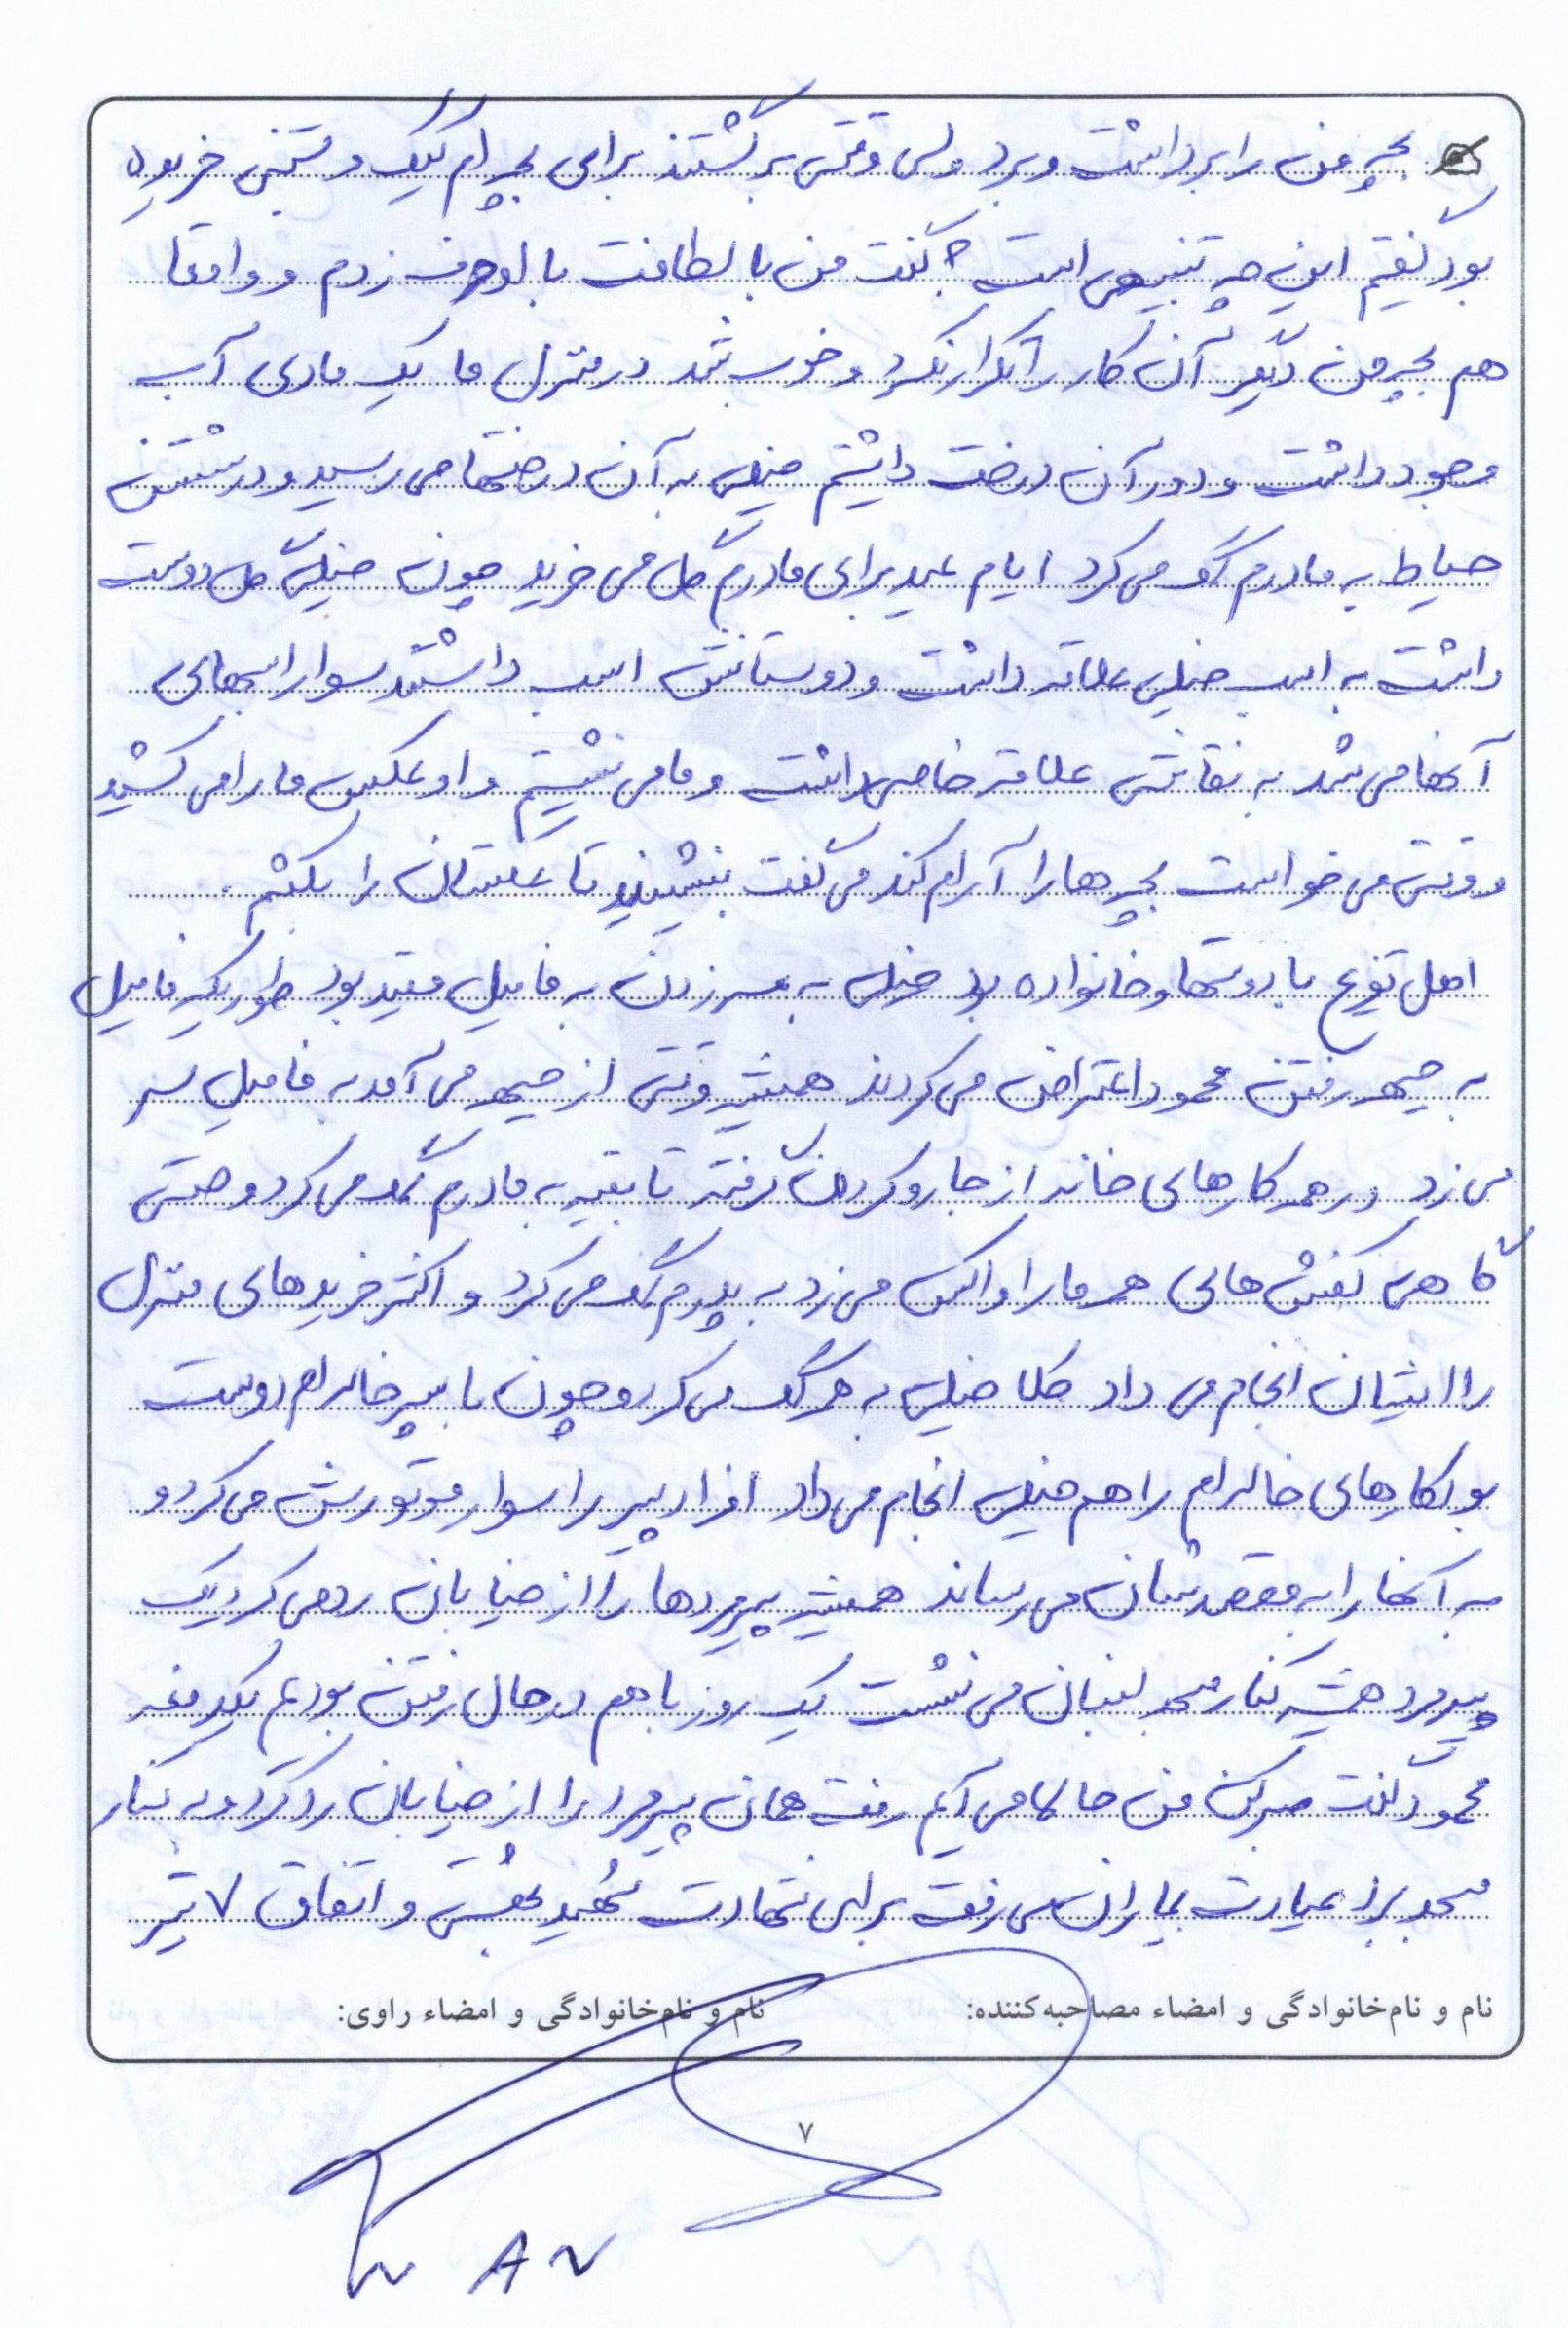 بچه من را برداشت و برد ولی وقتی برگشتند برای بچه ام کیک و خریده
بود گفتم این چه تنبیهی است؟ گفت من با لطافت با او حرف زدم و واقعا
هم بچه من دیگر آن کار را تکرار نکرد و خوب شد در منزل ما یک مادی آب
وجود داشت و دور آن درخت داشتیم خیلی به آن درختها می رسید و در شستن
حیاط به مادرم کمک می کرد ایام عید برای مادرم گل می خرید چون خیلی گل دوست
داشت به اسب خیلی علاقه داشت و دوستانش اسب داشتند سوار اسبهای
آنها می شد به نقاشی علاقه خاصی داشت و ما می نشستیم و او عکس ما را می کشید
وقتی می خواست بچه ها را آرام کند می گفت بنشینید تا عکستان را بکشم.
اهل تفریح با دوستها و خانواده بود خیلی به سر زدن به فامیل مقید بود طوریکه فامیل
به جبهه رفتن محمود اعتراض می کردند همیشه وقتی از جبهه می آمد به فامیل سر
می زد در همه کارهای خانه از جارو کردن گرفته تا بقیه به مادرم کمک می کرد و حتی
گاهی کفش هایی همه ما را واکس می زد به پدرم کمک می کرد و اکثر خریدهای منزل
را ایشان انجام می داد کلا خیلی به همه کمک می کرد و چون با پسر خاله ام دوست
بود کارهای خاله ام را هم خیلی انجام می داد افراد پیر را سوار موتورش می کرد و
به آنها را به مقصدشان می رساند همیشه پیرمردها را از خیابان رد می کرد یک
پیرمرد همیشه کنار مسجد لنبان می نشست یک روز با هم در حال رفتن بودیم یکدفعه
محمود گفت صبر کن من حالا می آیم رفت همان پیرمرد را از خیابان رد کرد و به کنار
مسجد برد عیادت بیماران می رفت برای شهادت شهید بهشتی و اتفاق ۷ تیر
نام و نام‌خانوادگی و امضاء مصاحبه‌کننده: نام و نام‌خانوادگی و امضاء راوی:
۷